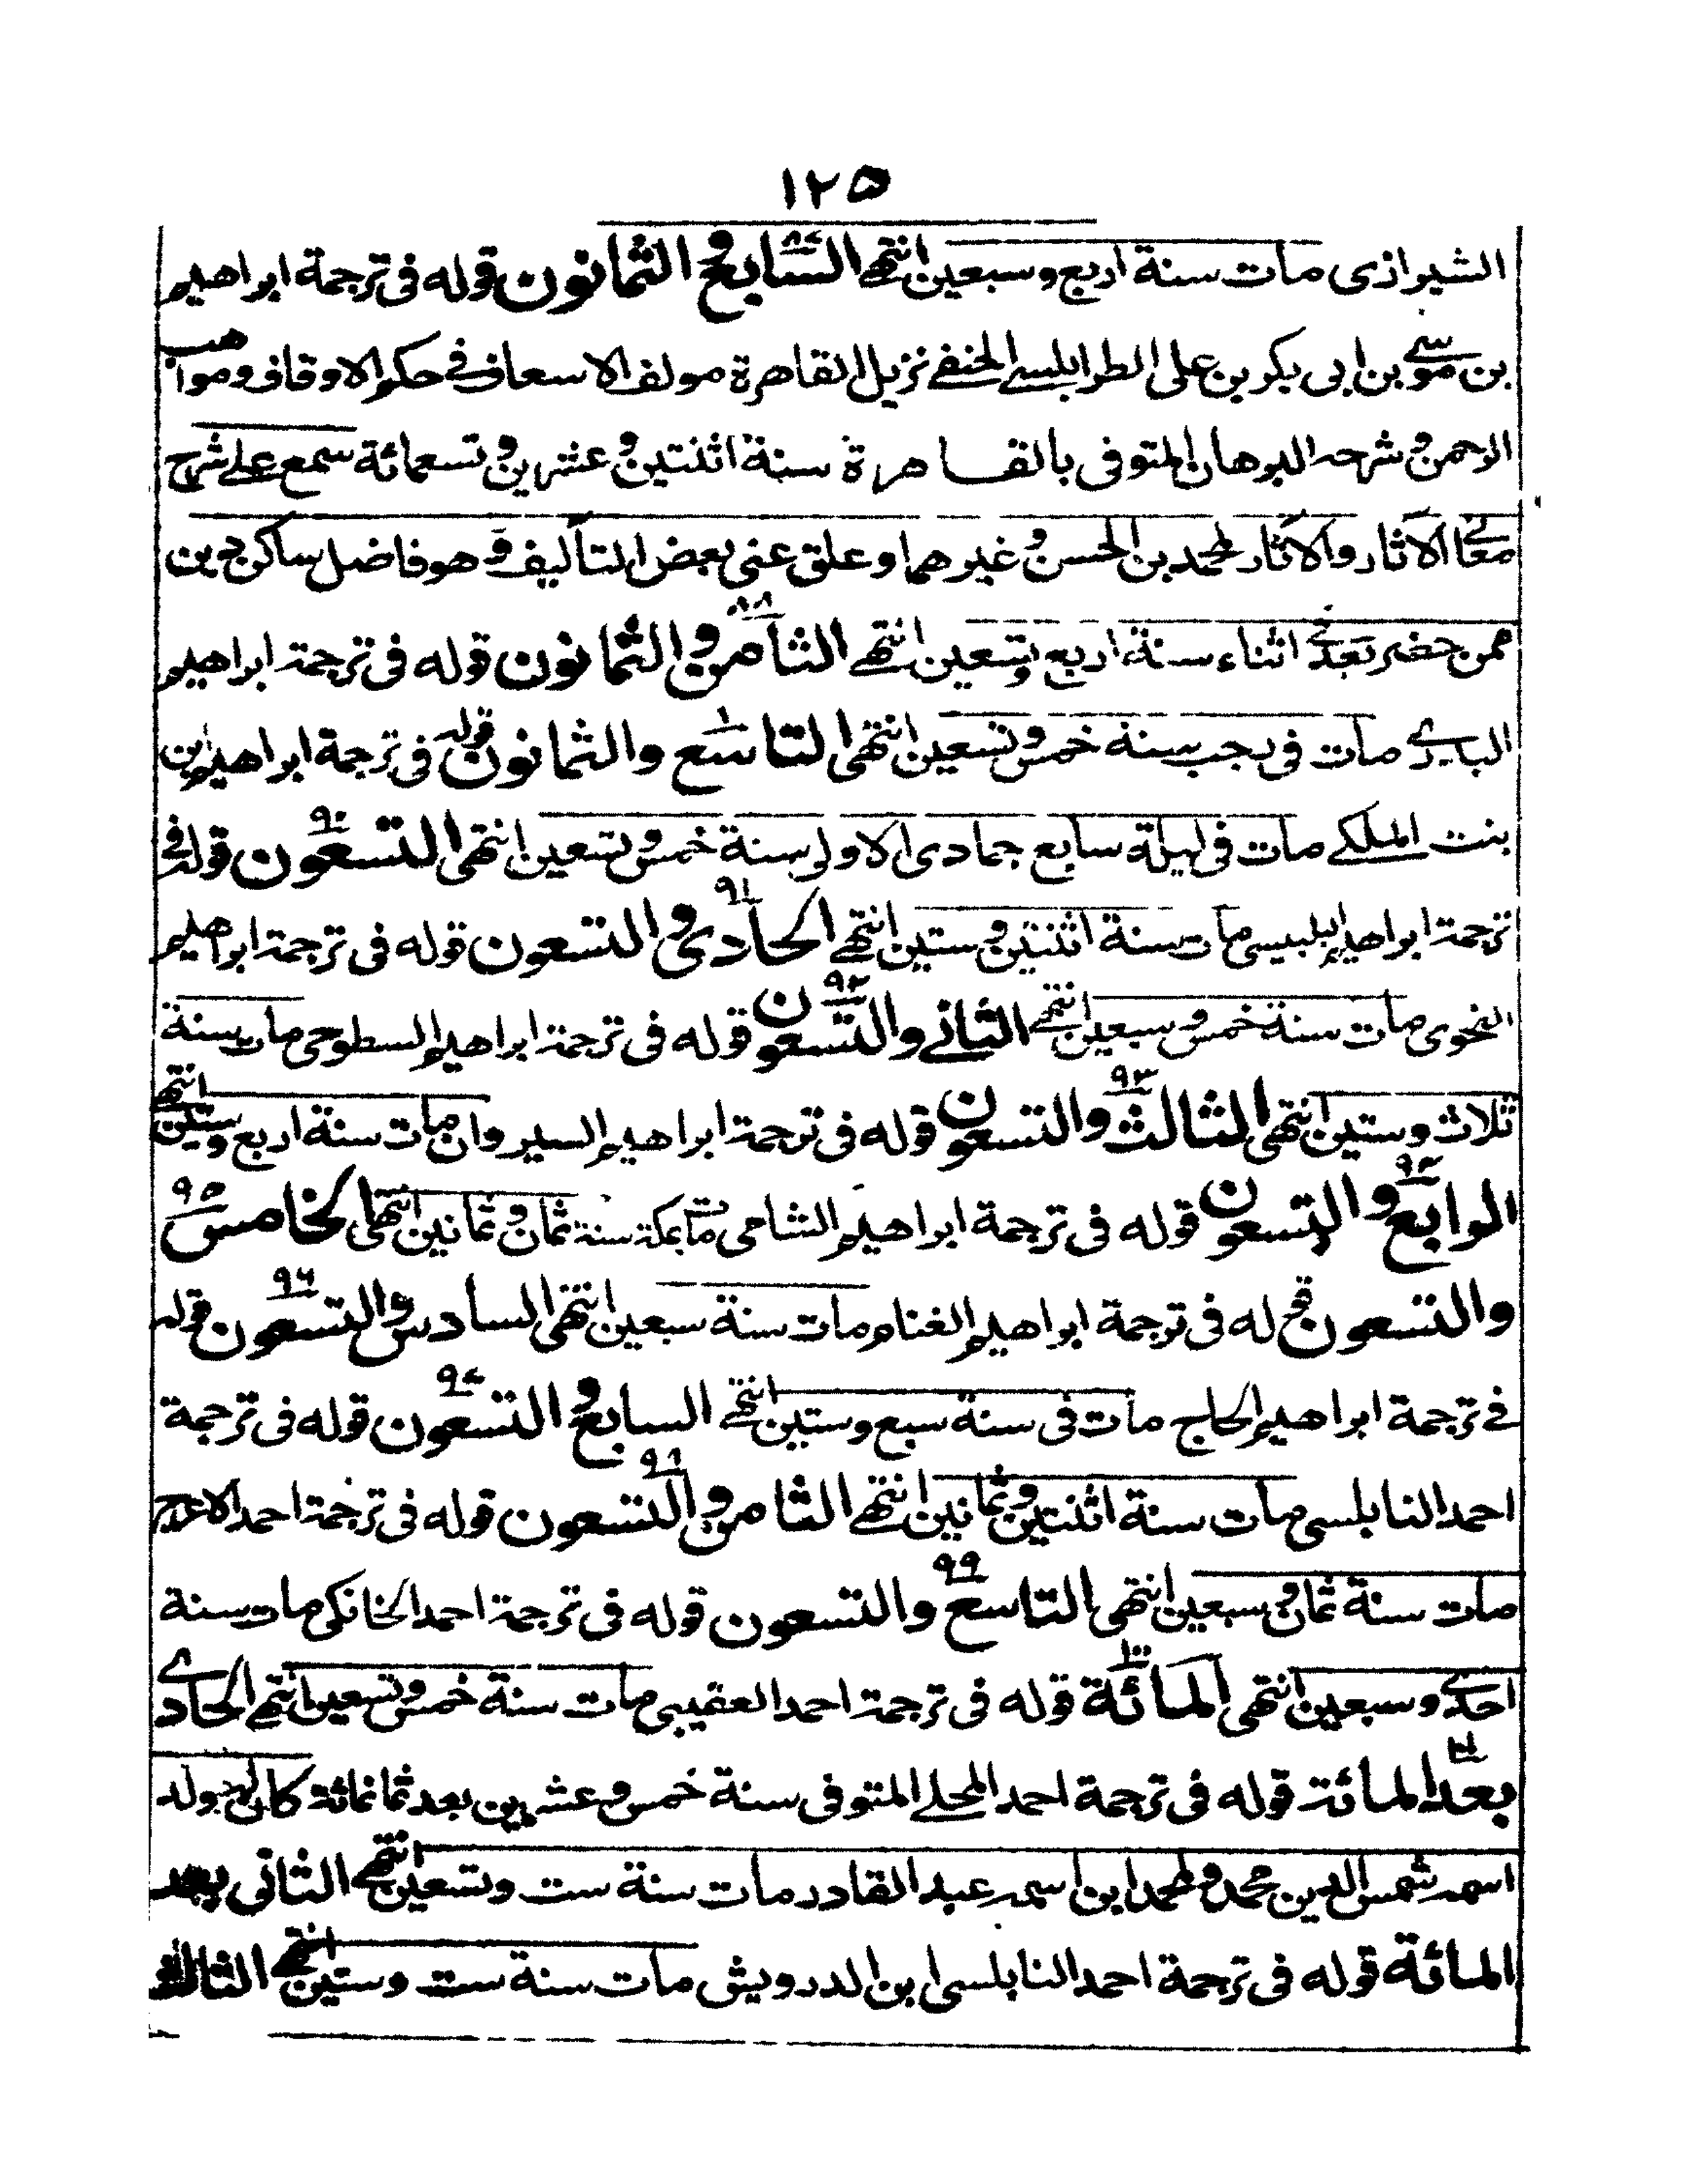 ١٢٥
الشيرازى مات سنة اربع وسبعين انتهى السابع والثمانون قوله فى ترجمة ابراهيم
بن موسى بن ابى بكر بن على الطرابلسى الحنفى نزيل القاهرة مولف الاسعاف فى حكم الاوقاف ومواهب
الرحمن وشرحه البرهان المتوفى بالقاهرة سنة اثنتين وعشرين وتسعمائة سمع على شرح
معانى الآثار والآثار لمحمد بن الحسن وغيرهما وعلق عنى بعض التآليف وهو فاضل ساكن دين
ممن حضر بعدى اثناء سنة اربع وتسعين انتهى الثامن والثمانون ٨٨ قوله فى ترجمة ابراهيم
البارى مات فى رجب سنة خمس وتسعين انتهى التاسع والثمانون قوله فى ترجمة ابراهيم بن
بنت الملكى مات فى ليلة سابع جمادى الاولى سنة خمس وتسعين انتهى التسعون ٩٠ قوله فى
ترجمة ابراهيم البلبيسى مات سنة اثنتين وستين انتهى الحادى والتسعون ٩١ قوله فى ترجمة ابراهيم
النحوى مات سنة خمس وسبعين انتهى الثانى والتسعون ٩٢ قوله فى ترجمة ابراهيم السطوحى مات سنة
ثلاث وستين انتهى الثالث والتسعون ٩٣ قوله فى ترجمة ابراهيم السيروان مات سنة اربع وستين انتهى
الرابع والتسعون ٩٤ قوله فى ترجمة ابراهيم الشامى مات بمكة سنة ثمان وثمانين انتهى الخامس ٩٥
والتسعون قوله فى ترجمة ابراهيم الغنام مات سنة سبعين انتهى السادس والتسعون ٩٦ قوله
فى ترجمة ابراهيم الحاج مات فى سنة سبع وستين انتهى السابع والتسعون ٩٧ قوله فى ترجمة
احمد النابلسى مات سنة اثنتين وثمانين انتهى الثامن والتسعون ٩٨ قوله فى ترجمة احمد الاعرج
مات سنة ثمان وسبعين انتهى التاسع والتسعون ٩٩ قوله فى ترجمة احمد الخانكى مات سنة
احدى وسبعين انتهى المائة ١٠٠ قوله فى ترجمة احمد العقيبى مات سنة خمس وتسعين انتهى الحادى
بعد المائة ١٠١ قوله فى ترجمة احمد المحلى المتوفى سنة خمس وعشرين بعد ثمانمائة كان له ولد
اسمه شمس الدين محمد ولمحمد ابن اسمه عبد القادر مات سنة ست وتسعين انتهى الثانى بعد
المائة قوله فى ترجمة احمد النابلسى ابن الدرويش مات سنة ست وستين انتهى الثالث